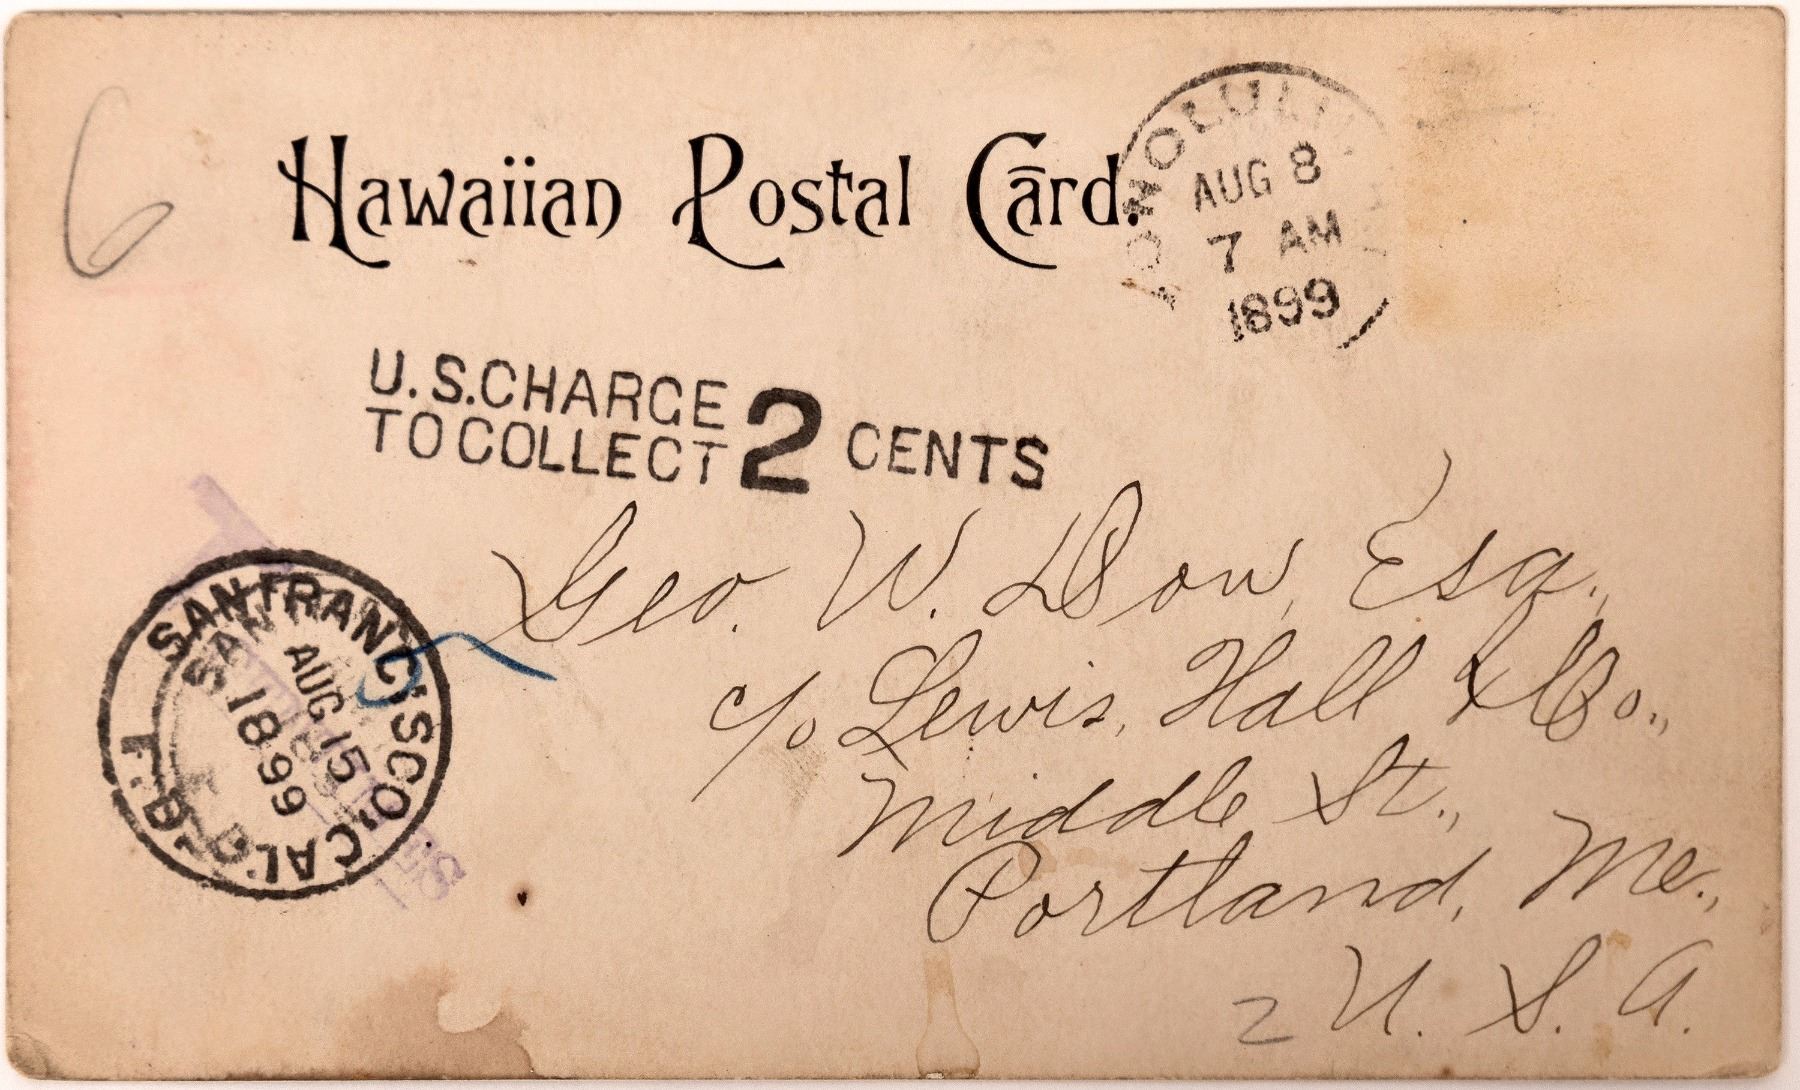 6
Hawaiian Postal Card.
HONOLULU
AUG 8
7 AM
1899
U.S. CHARGE
TO COLLECT 2 CENTS
Geo. W. Dow, Esq.,
c/o Lewis, Hall & Co.,
Middle St.,
Portland, Me.,
U. S. A.
2
SAN FRANC'SCO, CAL.
AUG 15
1899
F. D.
SAN